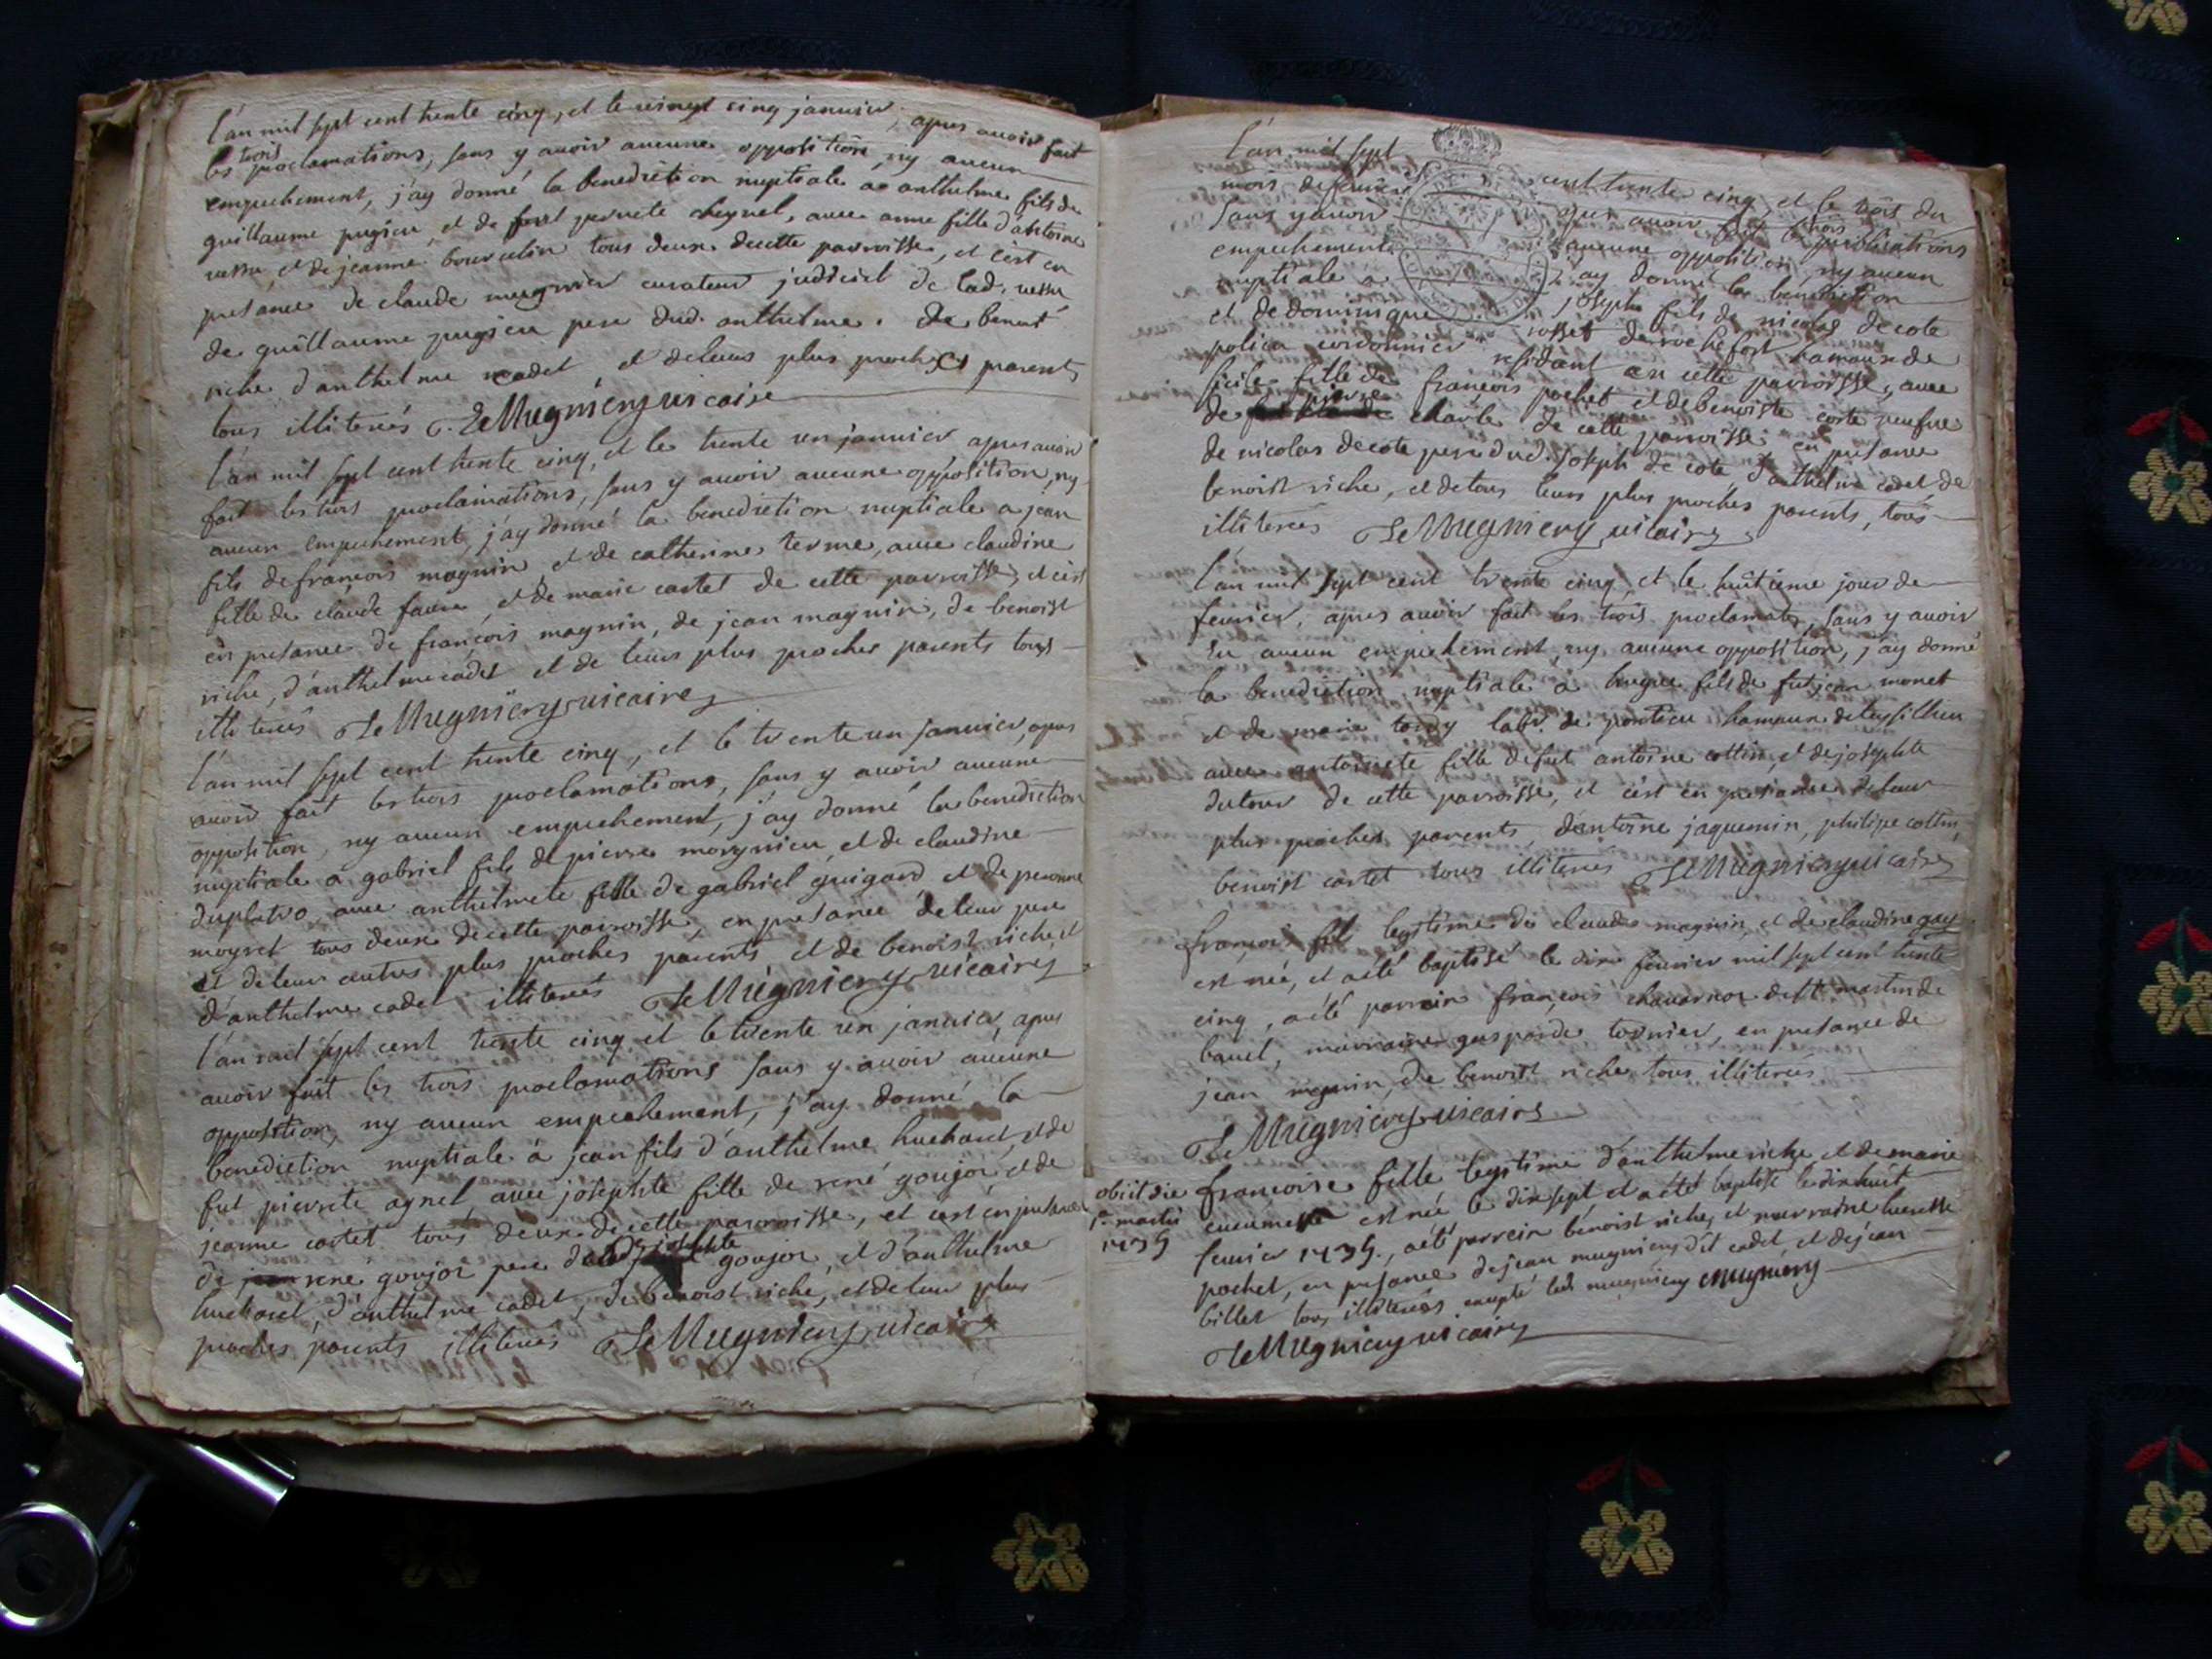 l'an mil sept cent trente cinq, et le vingt cinq janvier, apres avoir fait
les trois proclamations, sans y avoir aucune opposition, ny aucun
empechement, j'ay donné la benediction nuptiale a anthelme fils de
guillaume pugieu, et de pernete cheynel, avec anne fille d'antoine
et de jeanne bourcelin tous deux de cette parroisse, et c'est en
presance de claude mugnier curateur judiciel de lad.
de guillaume pugieu pere dud. anthelme. de benoit
riche d'anthelme cadet, et de leurs plus proches parents
tous illiterés Le Mugniery vicaire
l'an mil sept cent trente cinq, et le trente un janvier apres avoir
fait les trois proclamations, sans y avoir aucune opposition, ny
aucun empechement, j'ay donné la benediction nuptiale a jean
fils de françois magnin, et de catherine terme, avec claudine
fille de claude favre, et de marie cartet de cette parroisse, et c'est
en presance de françois magnin, de jean magnin, de benoist
riche, d'anthelme cadet et de leurs plus proches parents tous
illiterés Le Mugniery vicaire
l'an mil sept cent trente cinq, et le trente un janvier, apres
avoir fait les trois proclamations, sans y avoir aucune
opposition, ny aucun empechement, j'ay donné la benediction
nuptiale a gabriel fils de pierre, et de claudine
duplatro, avec anthelmete fille de gabriel guigard et de peronne
moyret tous deux de cette parroisse, en presance de leur pere
et de leur autres plus proches parents et de benoist riche, et
d'anthelme cadet illiterés Le Mugniery vicaire
l'an mil sept cent trente cinq et le trente un janvier, apres
avoir fait les trois proclamations sans y avoir aucune
opposition, ny aucun empechement, j'ay donné la
benediction nuptiale a jean fils d'anthelme huchard, et de
fut pierrete agnel, avec josephte fille de rené goujor, et de
jeanne cartet tous deux de cette parroisse, et c'est en presance
de rené goujor pere de lad. josephte goujor, et d'anthelme
huchard, d'anthelme cadet, de benoist riche, et de leur plus
proches parents illiterés Le Mugniery vicaire
l'an mil sept cent trente cinq, et le trois du
mois de fevrier apres avoir fait les trois publications
sans y avoir aucune opposition, ny aucun
empechement j'ay donné la benediction
nuptiale a joseph fils de nicolas decote
et de dominique rosset de rochefort hamaux de
polieu cordonnier residant en cette parroisse, avec
sicile fille de françois pochet et de benoiste corte veufve
de pierre charle de cette parroisse en presance
de nicolas decote pere dud. joseph de cote d'anthelme cadet de
benoist riche, et de tous leurs plus proches parents, tous
illiterés Le Mugniery vicaire
l'an mil sept cent trente cinq, et le huitieme jour de
fevrier, apres avoir fait les trois proclamatōs, sans y avoir
eu aucun empechement, ny aucune opposition, j'ay donné
la benediction nuptiale a hugue fils de fut jean monet
et de marie labr. de pontieu hamaux de
avec antoinete fille de fut antoine cottin et de josephte
dutour de cette parroisse, et c'est en presance de leur
plus proches parents, d'antoine jaquemin, philipe cottin,
benoist cartet tous illiterés Le Mugniery vicaire
françois fils legitime de claude magnin, et de claudine gay
est née, et a eté baptisé le dix fevrier mil sept cent trente
cinq, a eté parrain françois de st martin de
bavel, marraine gasparde tornier, en presance de
jean magnin, de benoist riche tous illiterés
Le Mugniery vicaire
obiit die
1a martii
1735
françoise fille legitime d'anthelme riche et de marie
est née le dix sept et a eté baptisé le dix huit
fevrier 1735., a eté parrein benoist riche, et marraine lucresse
pochet, en presance de jean mugniery dit cadet, et de jean
billet tous illiterés excepté led. mugniery Mugniery
Le Mugniery vicaire